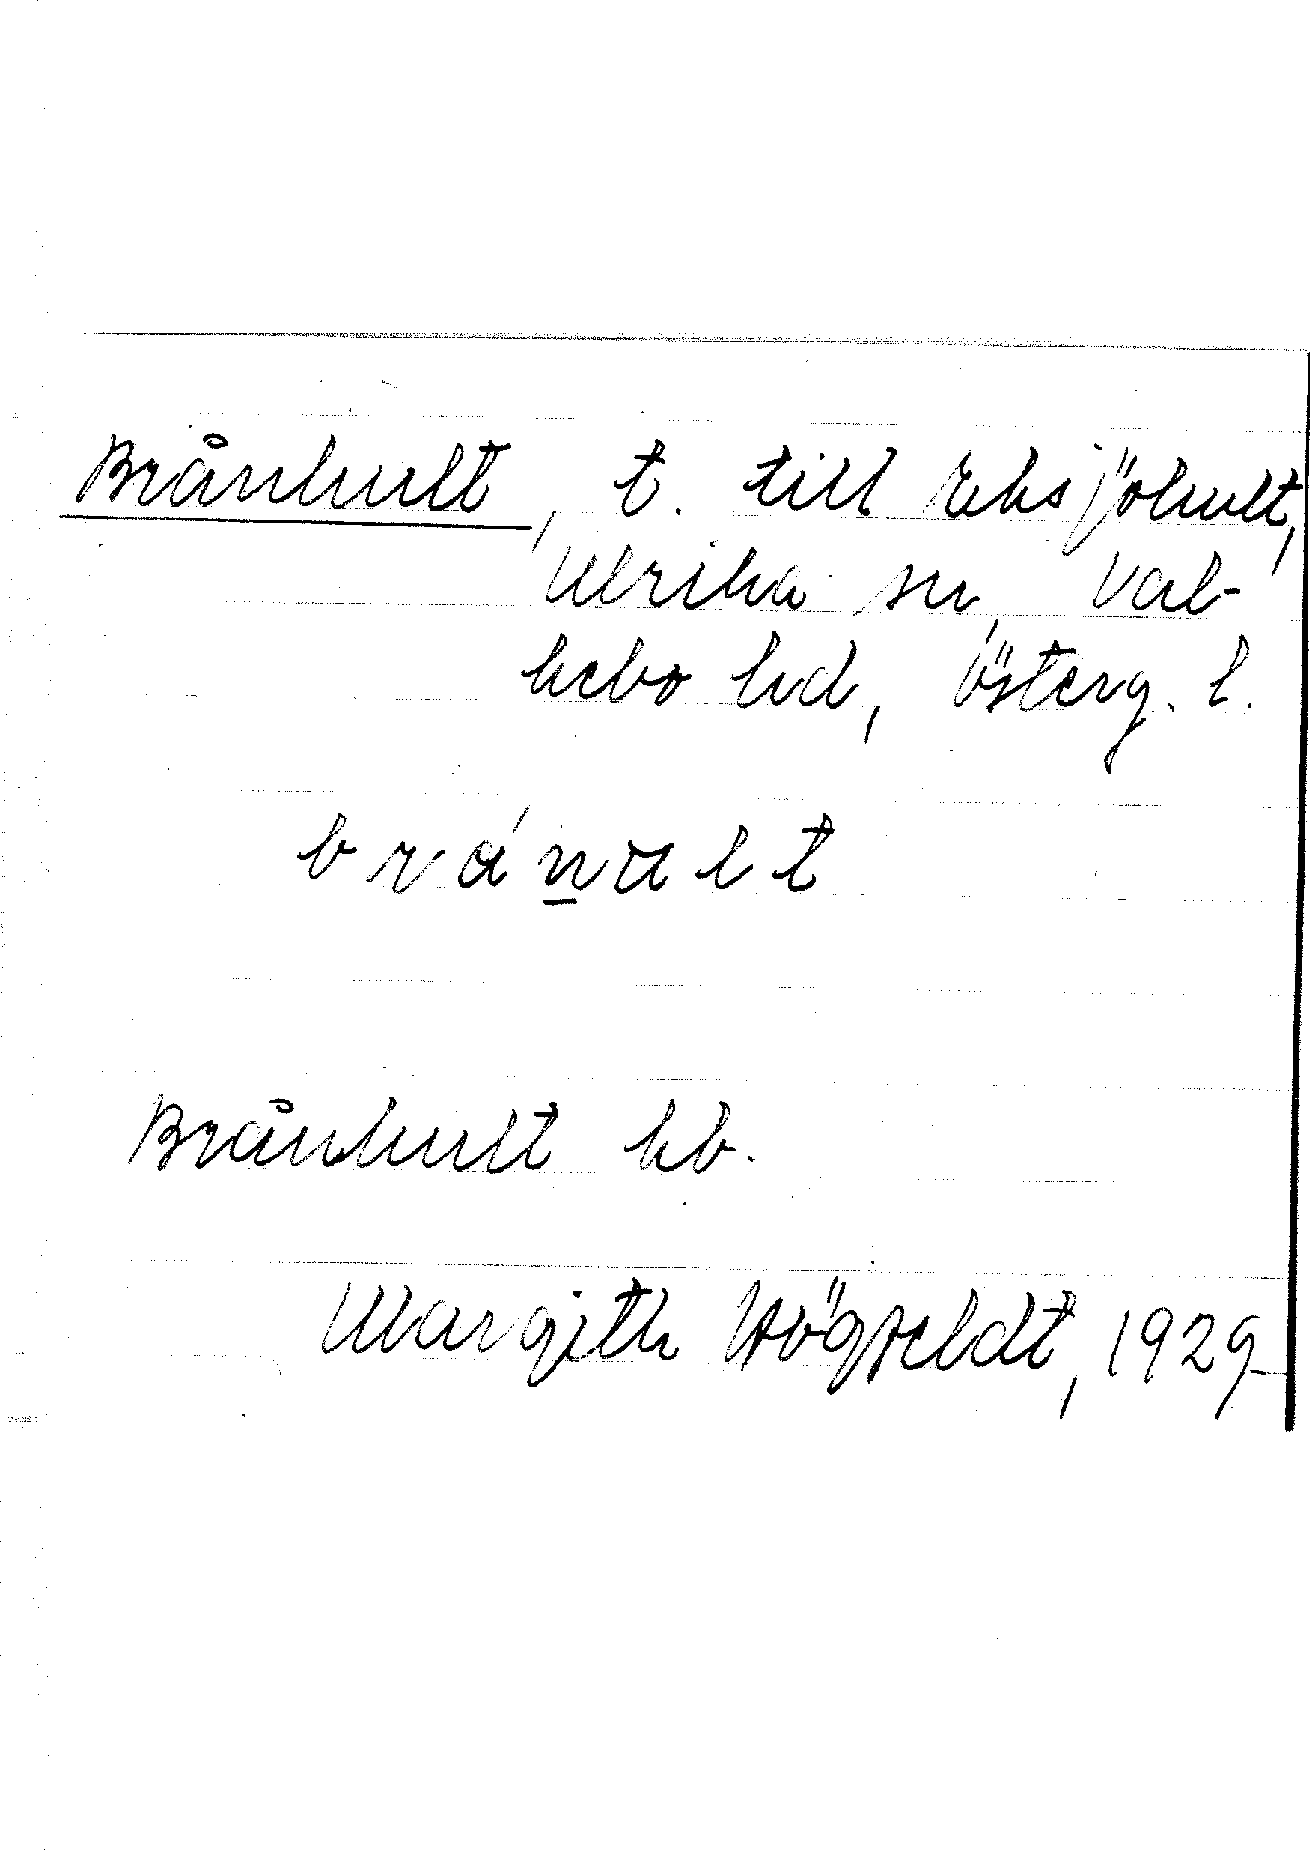 Brånhult, t. till Eksjöhult,
Ulrika sn, Valk-
kebo hd, Österg. l.
bránult
Brånhult kb.
Margith Högfeldt, 1929